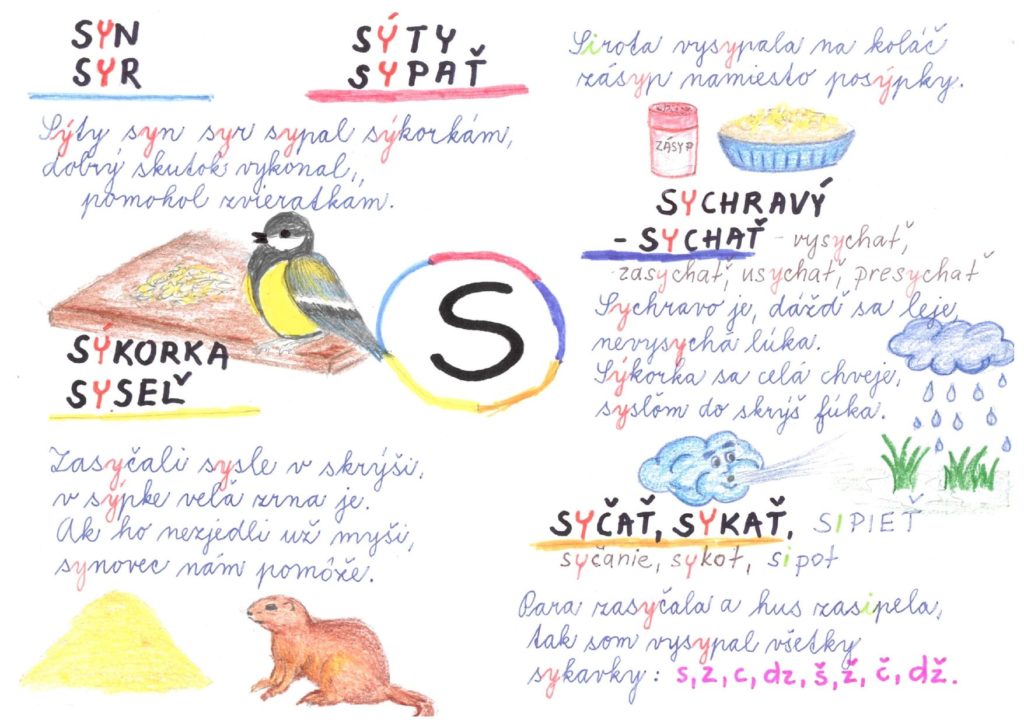 SYN
SYR
SÝTY
SYPAŤ
Sýty syn syr sypal sýkorkám,
dobrý skutok vykonal,
pomohol zvieratkám.
SÝKORKA
SYSEĽ
Zasyčali sysle v skrýši,
v sýpke veľa zrna je.
Ak ho nezjedli už myši,
synovec nám pomôže.
S
Sirota vysypala na koláč
zásyp namiesto posýpky.
ZÁSYP
SYCHRAVÝ
- SYCHAŤ - vysychať,
zasychať, usychať, presychať
Sychravo je, dážď sa leje,
nevysycha lúka.
Sýkorka sa celá chveje,
sysľom do skrýš fúka.
SYČAŤ, SYKAŤ, SIPIEŤ
syčanie, sykot, sipot
Para zasyčala a hus zasipela,
tak som vysypal všetky
sykavky: s, z, c, dz, š, ž, č, dž.